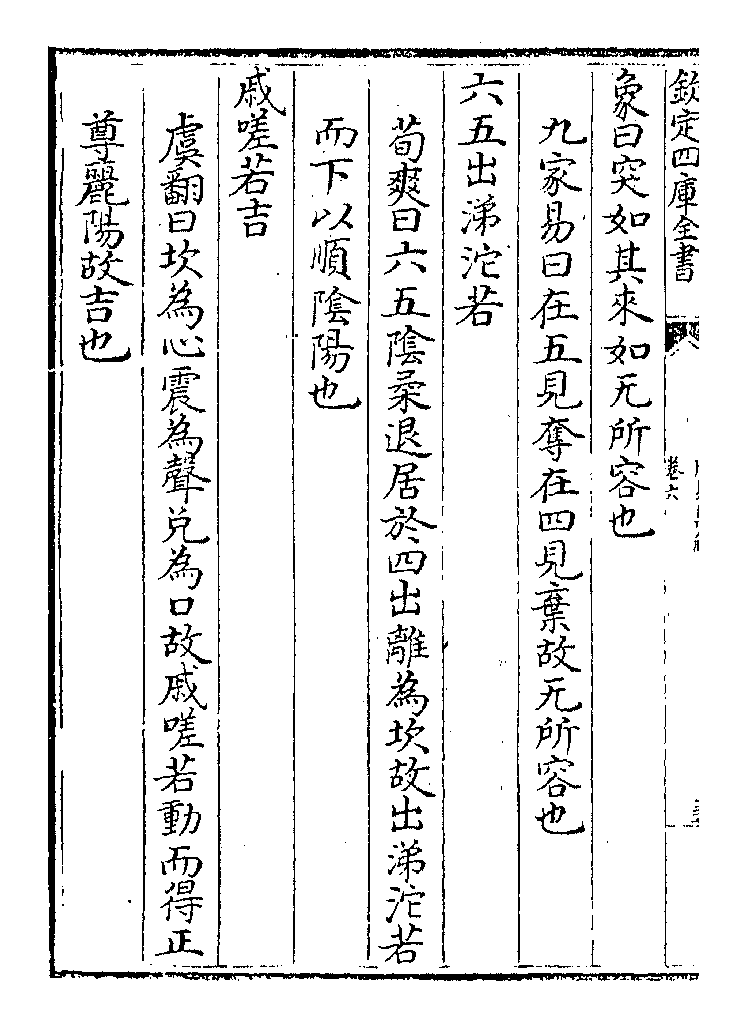 欽定四庫全書
卷六
象曰突如其來如无所容也
九家易曰在五見奪在四見棄故无所容也
六五出涕沱若
荀爽曰六五陰柔退居於四出離為坎故出涕沱若
而下以順陰陽也
戚嗟若吉
虞翻曰坎為心震為聲兌為口故戚嗟若動而得正
尊麗陽故吉也